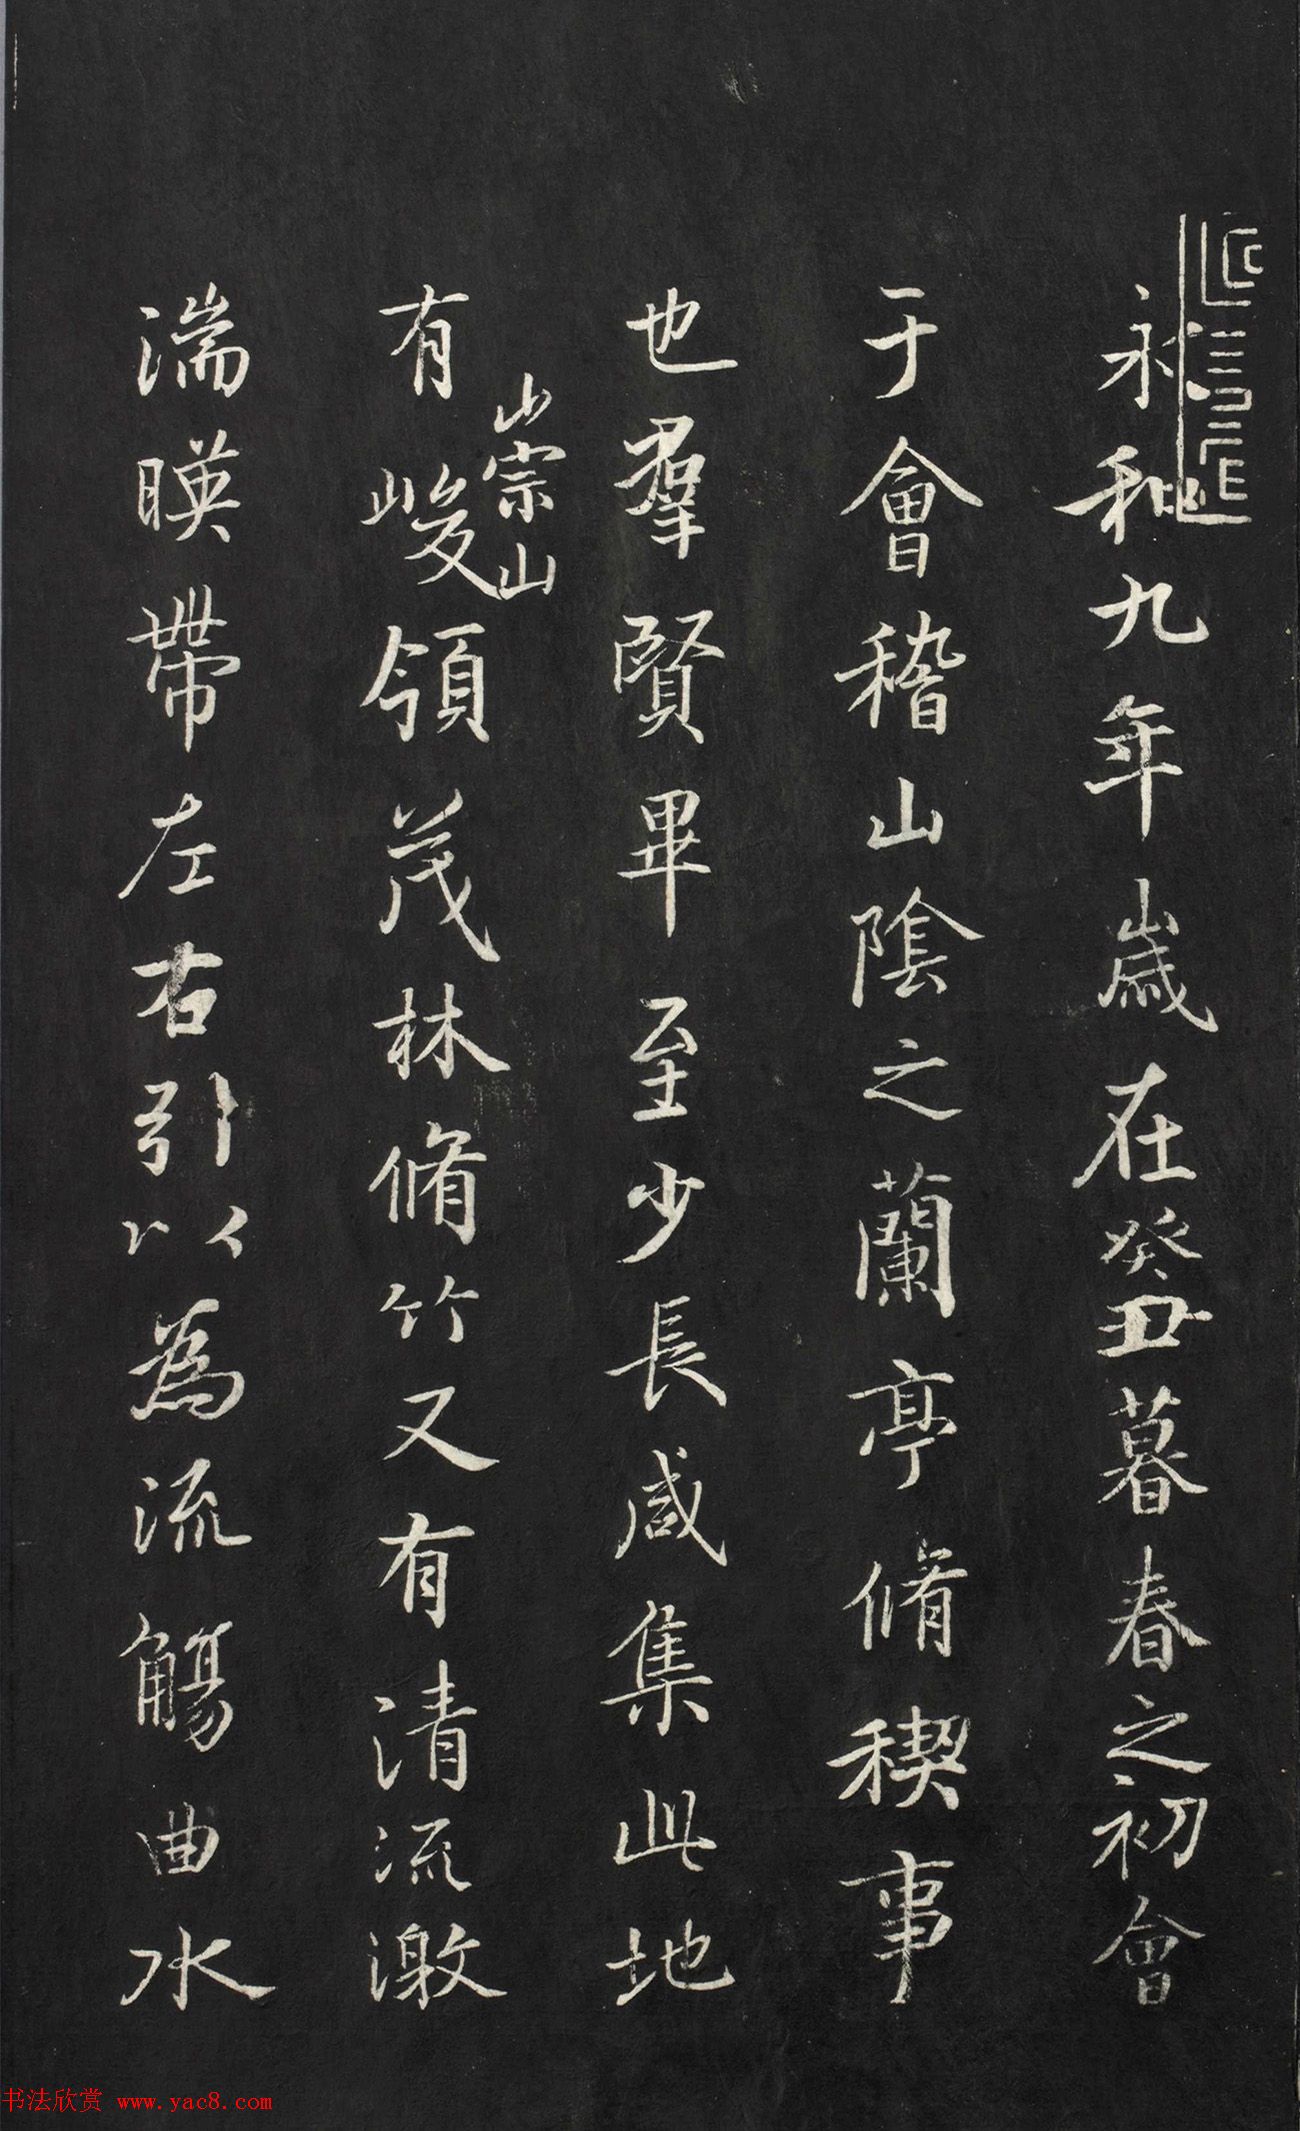 永和九年歲在癸丑暮春之初會
于會稽山陰之蘭亭脩稧事
也羣賢畢至少長咸集此地
有峻領茂林脩竹又有清流激
崇山
湍暎帶左右引以為流觴曲水
书法欣赏 www.yac8.com